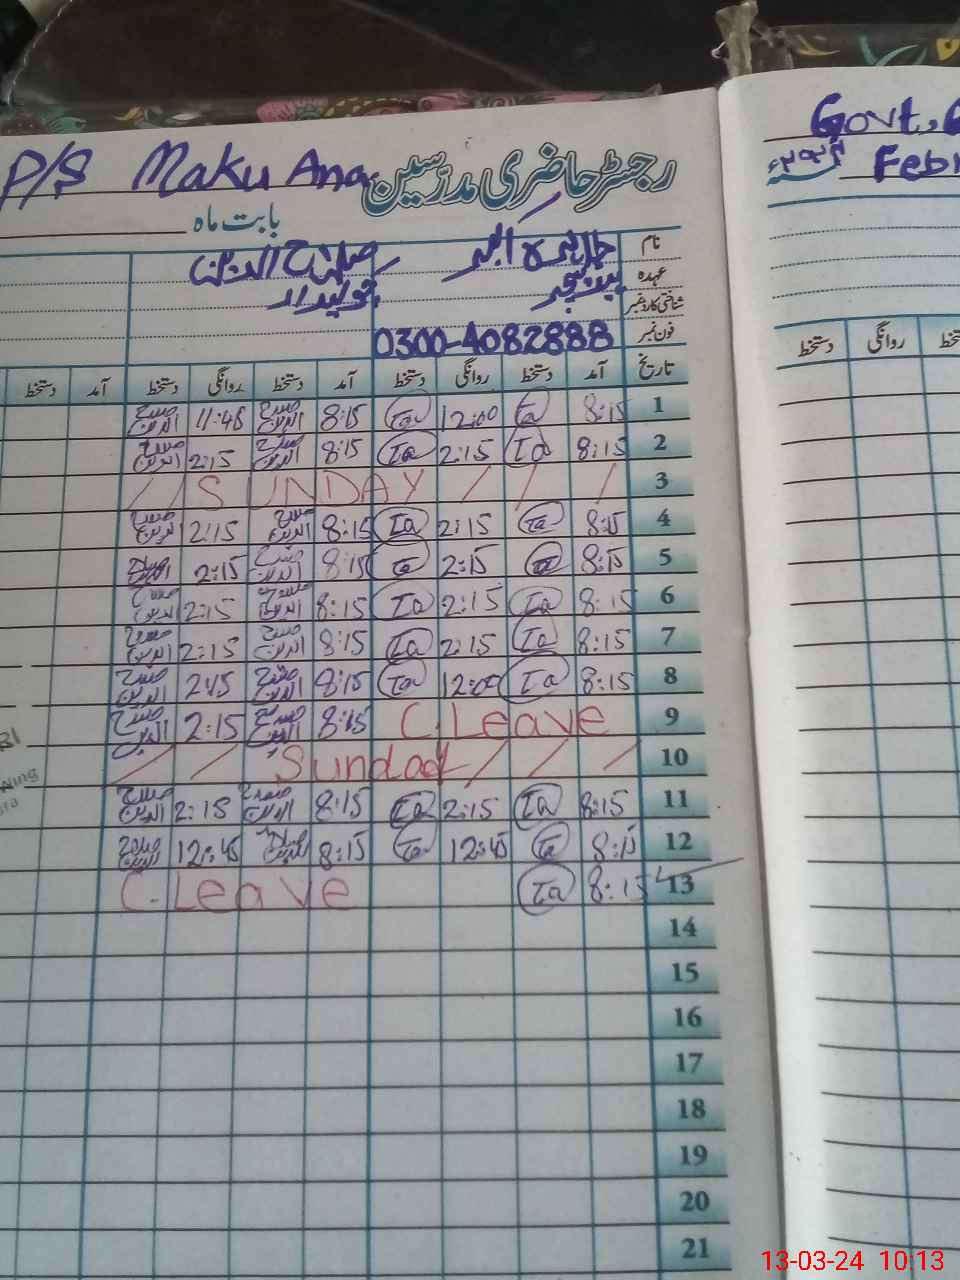 P/S Maku Ana
رجسٹر حاضری مدرسین
بابت ماہ
Govt.
Febr
نام
عہدہ
شناختی کارڈ نمبر
فون نمبر 0300-4082888
صلاح الدین
چوکیدار
تاریخ آمد دستخط روانگی دستخط آمد دستخط روانگی دستخط آمد دستخط
روانگی دستخط
1 8:15 Ia 12:00 Ia 8:15 صلاح الدین 11:45 صلاح الدین
2 8:15 Ia 2:15 Ia 8:15 صلاح الدین 2:15 صلاح الدین
3 / / / SUNDAY / /
4 8:15 Ia 2:15 Ia 8:15 صلاح الدین 2:15 صلاح الدین
5 8:15 Ia 2:15 Ia 8:15 صلاح الدین 2:15 صلاح الدین
6 8:15 Ia 2:15 Ia 8:15 صلاح الدین 2:15 صلاح الدین
7 8:15 Ia 2:15 Ia 8:15 صلاح الدین 2:15 صلاح الدین
8 8:15 Ia 12:00 Ia 8:15 صلاح الدین 2:15 صلاح الدین
9 C.Leave 8:15 صلاح الدین 2:15 صلاح الدین
10 / / / Sunday / /
11 8:15 Ia 2:15 Ia 8:15 صلاح الدین 2:15 صلاح الدین
12 8:15 Ia 12:45 Ia 8:15 صلاح الدین 12:45 صلاح الدین
13 8:15 Ia C.Leave
14
15
16
17
18
19
20
21
13-03-24 10:13